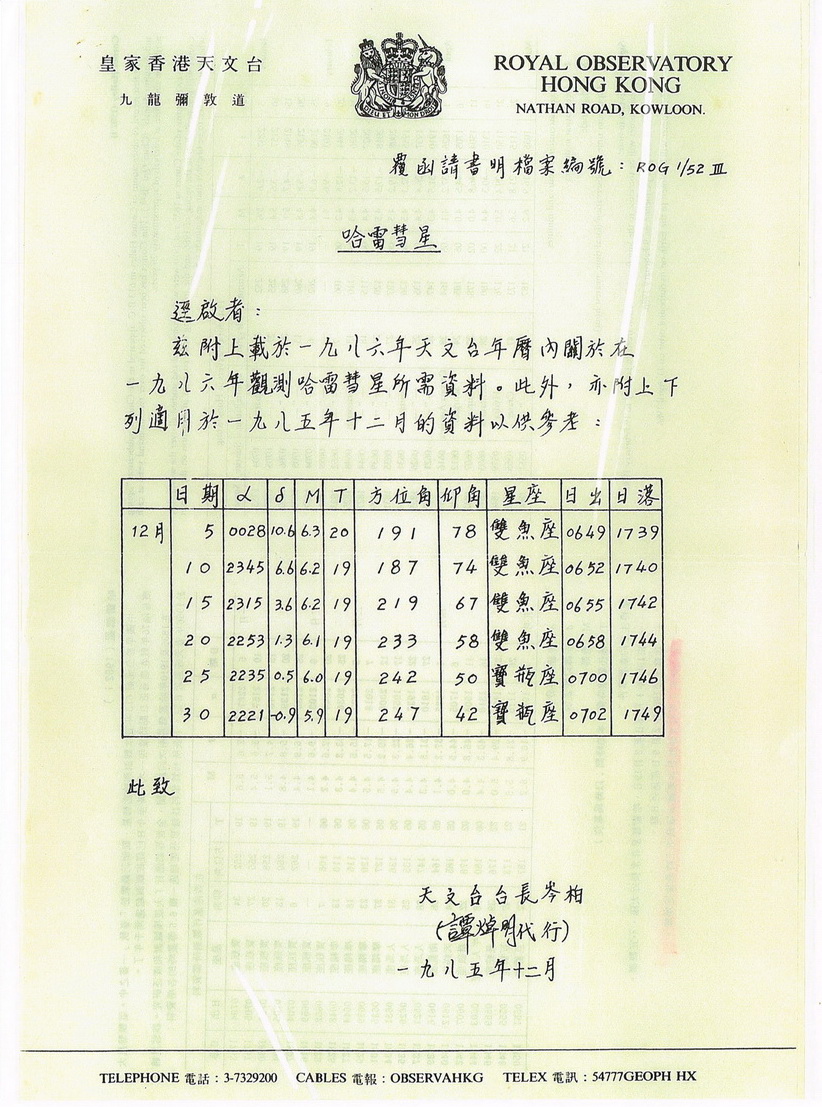 皇家香港天文台
九龍彌敦道
ROYAL OBSERVATORY
HONG KONG
NATHAN ROAD, KOWLOON.
覆函請書明檔案編號：ROG 1/52 III
哈雷彗星
逕啟者：
茲附上載於一九八六年天文台年曆內關於在
一九八六年觀測哈雷彗星所需資料。此外，亦附上下
列適用於一九八五年十二月的資料以供參考：
日期 α δ M T 方位角 仰角 星座 日出 日落
12月 5 0028 10.6 6.3 20 191 78 雙魚座 0649 1739
10 2345 6.6 6.2 19 187 74 雙魚座 0652 1740
15 2315 3.6 6.2 19 219 67 雙魚座 0655 1742
20 2253 1.3 6.1 19 233 58 雙魚座 0658 1744
25 2235 0.5 6.0 19 242 50 寶瓶座 0700 1746
30 2221 -0.9 5.9 19 247 42 寶瓶座 0702 1749
此致
天文台台長岑柏
(譚焯明代行)
一九八五年十二月
TELEPHONE 電話：3-7329200 CABLES 電報：OBSERVAHKG TELEX 電訊：54777GEOPH HX